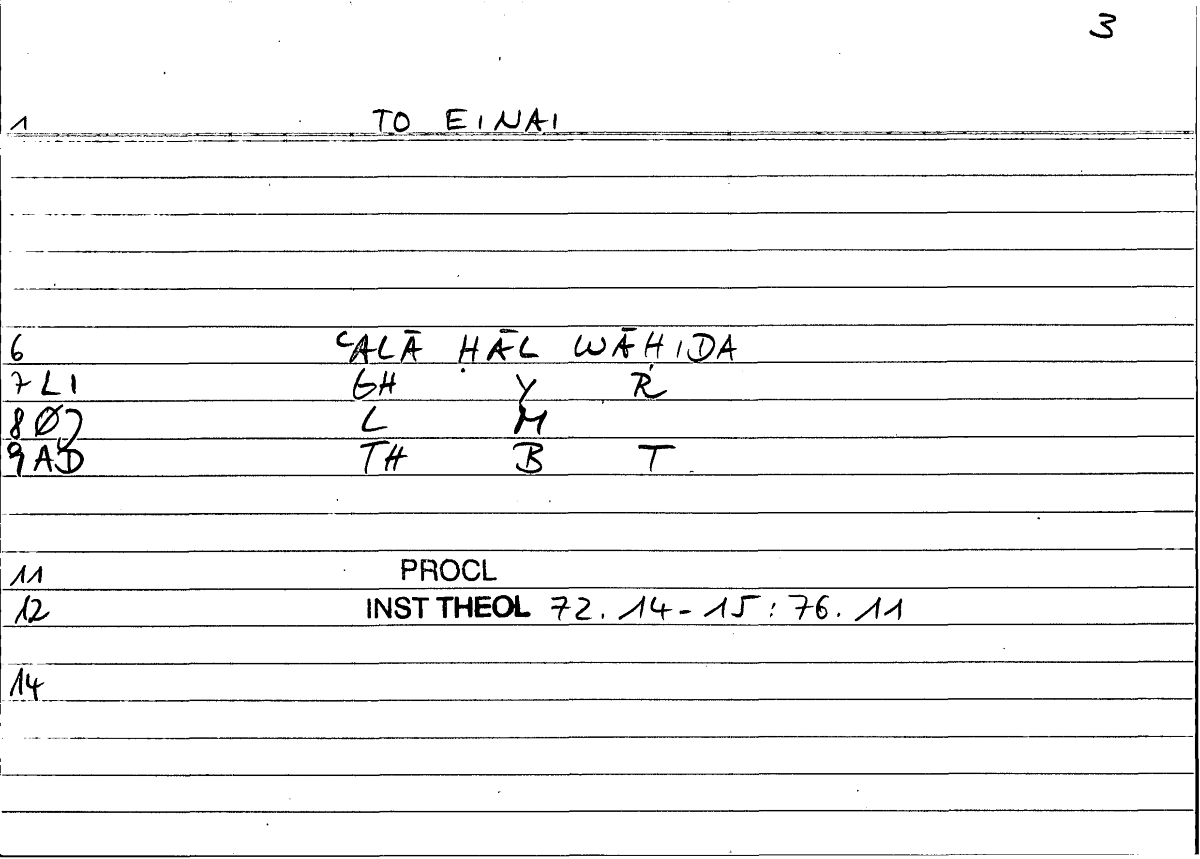 3
1 TO EINAI
6 ʿALĀ ḤĀL WĀḤIDA
7 LI GH Y R
8 Ø) L M
9 AD TH B T
11 PROCL
12 INST THEOL 72.14-15:76.11
14